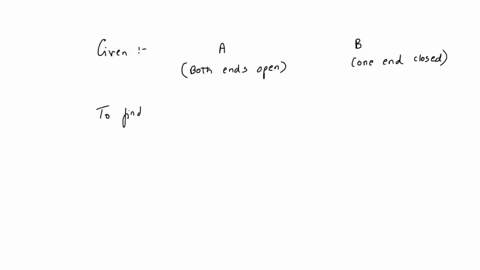 Given :- A B
(Both ends open) (one end closed)
To find